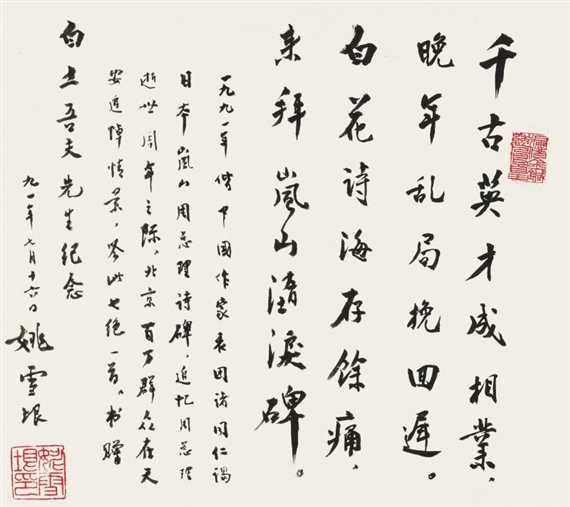 千古英才成相業，
晚年乱局挽回遲。
白花詩海存餘痛，
来拜嵐山清淚碑。
一九九一年偕中國作家表团諸同仁謁
日本嵐山周总理詩碑，追忆周总理
逝世周年之际，北京百万群众在天
安追悼情景，吟此七绝一首。书贈
白土吾夫先生纪念
九一年七月十六日
姚雪垠
姚雪垠印